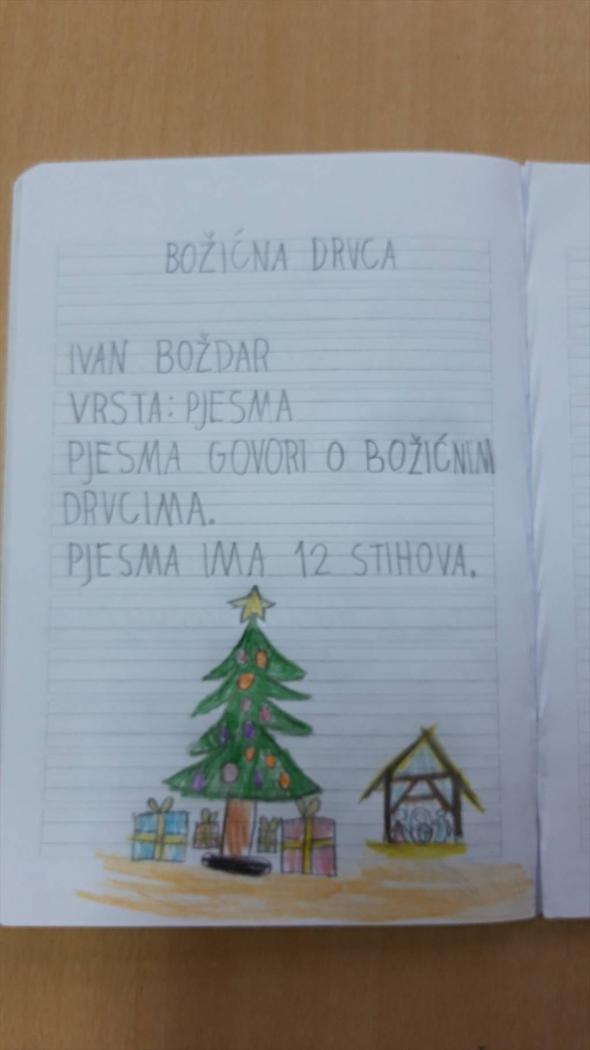 BOŽIĆNA DRVCA
IVAN BOŽDAR
VRSTA: PJESMA
PJESMA GOVORI O BOŽIĆNIM
DRVCIMA.
PJESMA IMA 12 STIHOVA.